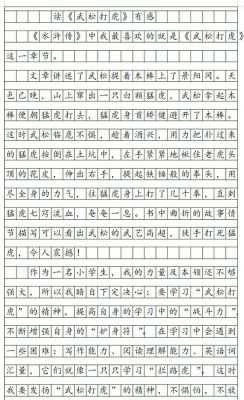 读《武松打虎》有感
《水浒传》中我最喜欢的就是《武松打虎》
这一章节。
文章讲述了武松提着木棒上了景阳冈。天
色已晚，山上窜出一只白额猛虎，武松拿起木
棒便朝猛虎打去，猛虎身首矫健避开了木棒。
这时武松临危不惧，趁着酒兴，用力把扑过来
的猛虎按倒在土坑中，左手紧紧地揪住老虎头
顶的花皮，伸出右手，提起铁锤般的拳头，用
尽全身的力气，往猛虎身上打了几十拳，直到
猛虎七窍流血，奄奄一息。书中曲折的故事情
节描写可以看出武松的武艺高超，徒手打死猛
虎，令人震撼！
作为一名小学生，我的力量及本领还不够
强大，所以我暗自下定决心：要学习“武松打
虎”的精神。提高自身的学习中的“战斗力”
不断增强自身的“护身符”，在学习中会遇到
一些困难：写作能力、阅读理解能力、英语词
汇量，它们就像一只只学习“拦路虎”，这时
我要发扬“武松打虎”的精神，不惧怕，不放